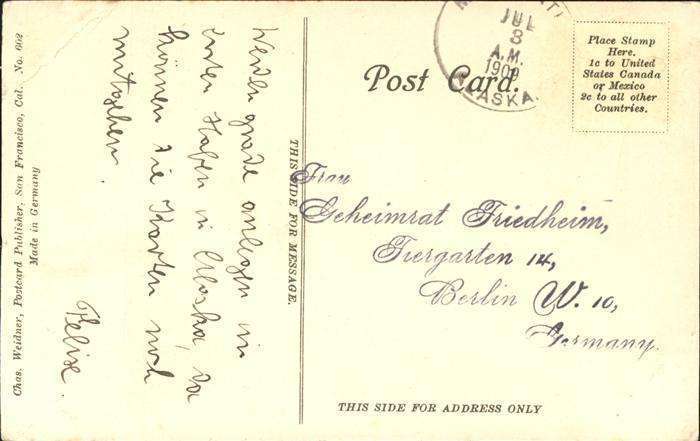 Werden grade anlegen im
ersten Hafen in Alaska, da
können die Karten noch
mitgehen.
Felix.
Chas. Weidner, Postcard Publisher, San Francisco, Cal. No. 602
Made in Germany
THIS SIDE FOR MESSAGE.
JUL
3
A.M.
1909
ALASKA.
Post Card.
Place Stamp
Here.
1c to United
States Canada
or Mexico
2c to all other
Countries.
Frau
Geheimrat Friedheim,
Tiergarten 14,
Berlin W. 10,
Germany.
THIS SIDE FOR ADDRESS ONLY